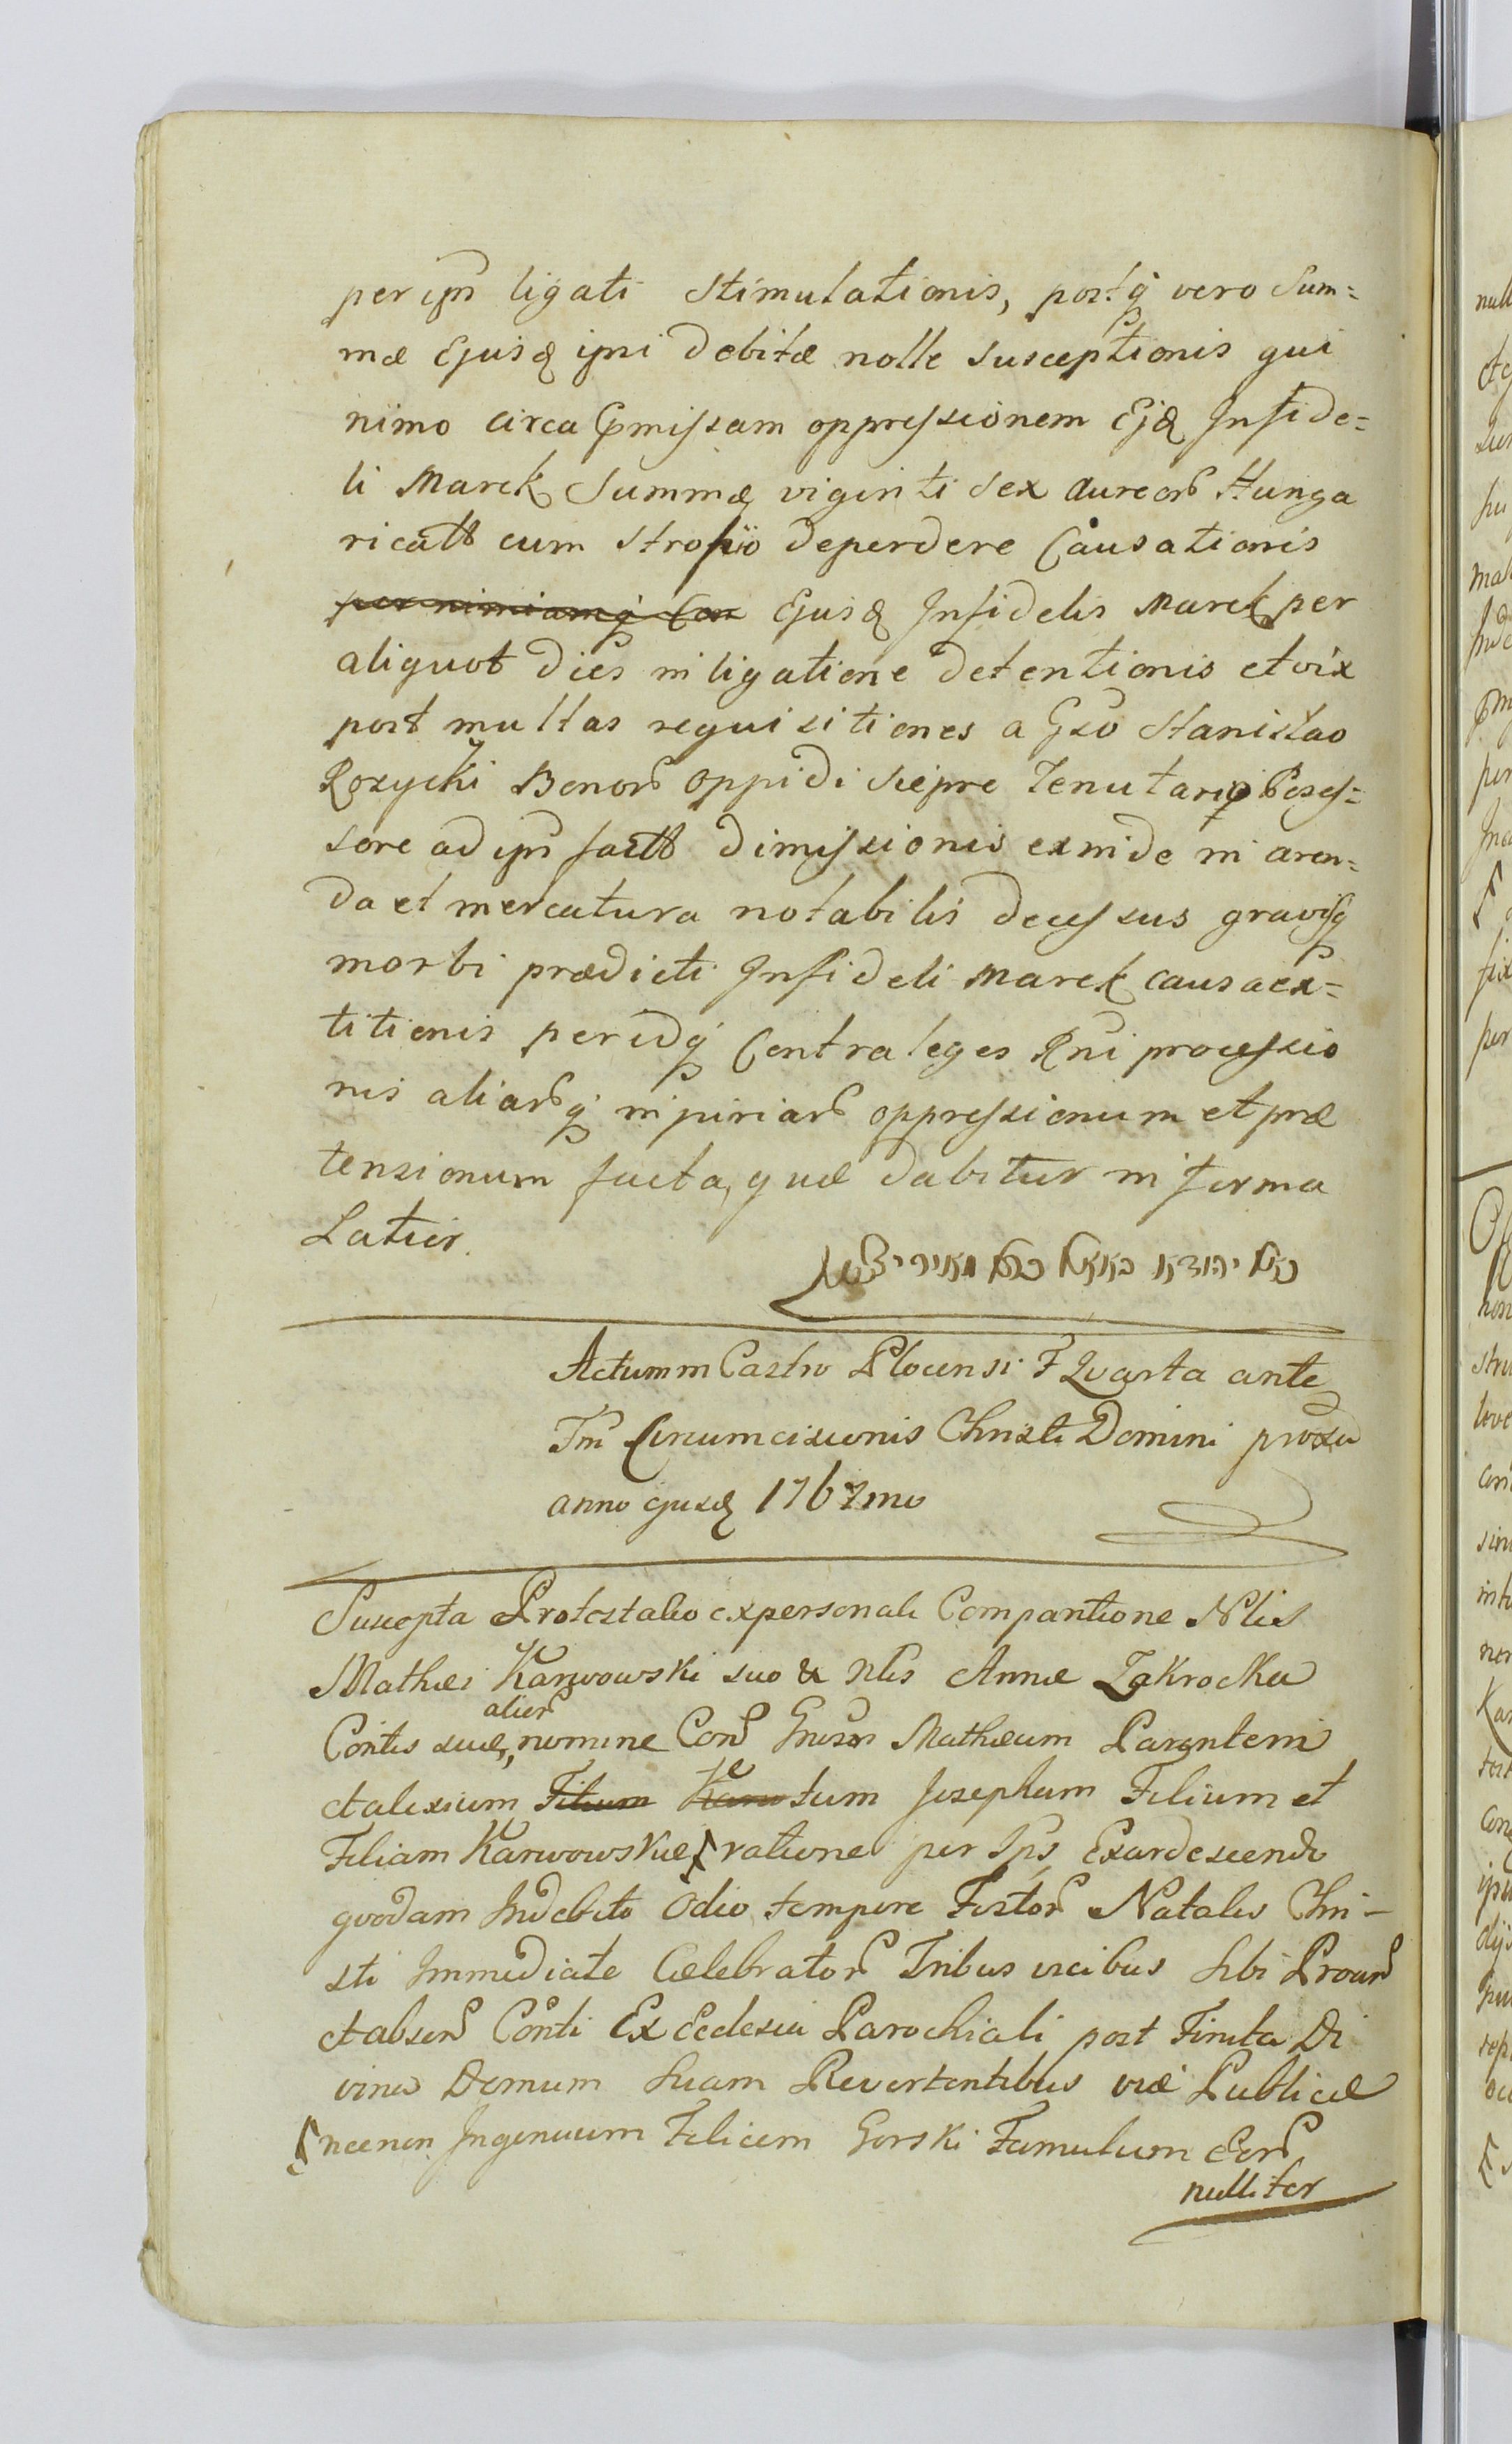 per ipn ligati stimulationis, postq vero Sum=
mæ Ejusd ipsi debitæ nolle susceptionis qui
nimo circa pmissam oppressionem Ejd Infide=
li Marek Summæ viginti sex aureor Hunga
ricall cum deperdere Causationis
per nimiamq Con Ejusd Infidelis Marek per
aliquot dies in ligatione detentionis et vix
post multas requisitiones a Gso Stanislao
Rozycki Bonor oppidi Siepre Tenutario Posses=
sore ad ipn factt dimissionis exinde in aren=
da et mercatura notabilis decessus gravisq
morbi prædicti Infideli Marek causa ex=
titionis per idq Contra leges Rni processio
nis aliarq injuriar oppressionum et præ
tensionum facta, quæ dabitur in forma
Latior.
יהודא
Actum in Castro Plocensi F Quarta ante
Fm Circumcisionis Christi Domini proxa
anno ejusd 1767mo
Suscepta Protestatio ex personali Comparitione Nlis
Mathæi Karwowski suo & Nlis Annæ Zakrocka
alior
Contis suæ, nomine Con Gnsos Mathæum Parentem
et alexium Filium Karw tum Josephum Filium et
Filiam Karwowskie ratione per Ips Exardescendo
quodam Indebito Odio tempore Festor Natalis Chri-
sti Immediate Celebrator Tribus vicibus Sibi Proan
et absen Conti Ex Ecclesia Parochiali post Finita Di
vina Domum Suam Revertentibus viæ Publicæ
necnon Ingenuum Felicem Gorski Famulum Eor
nulliter